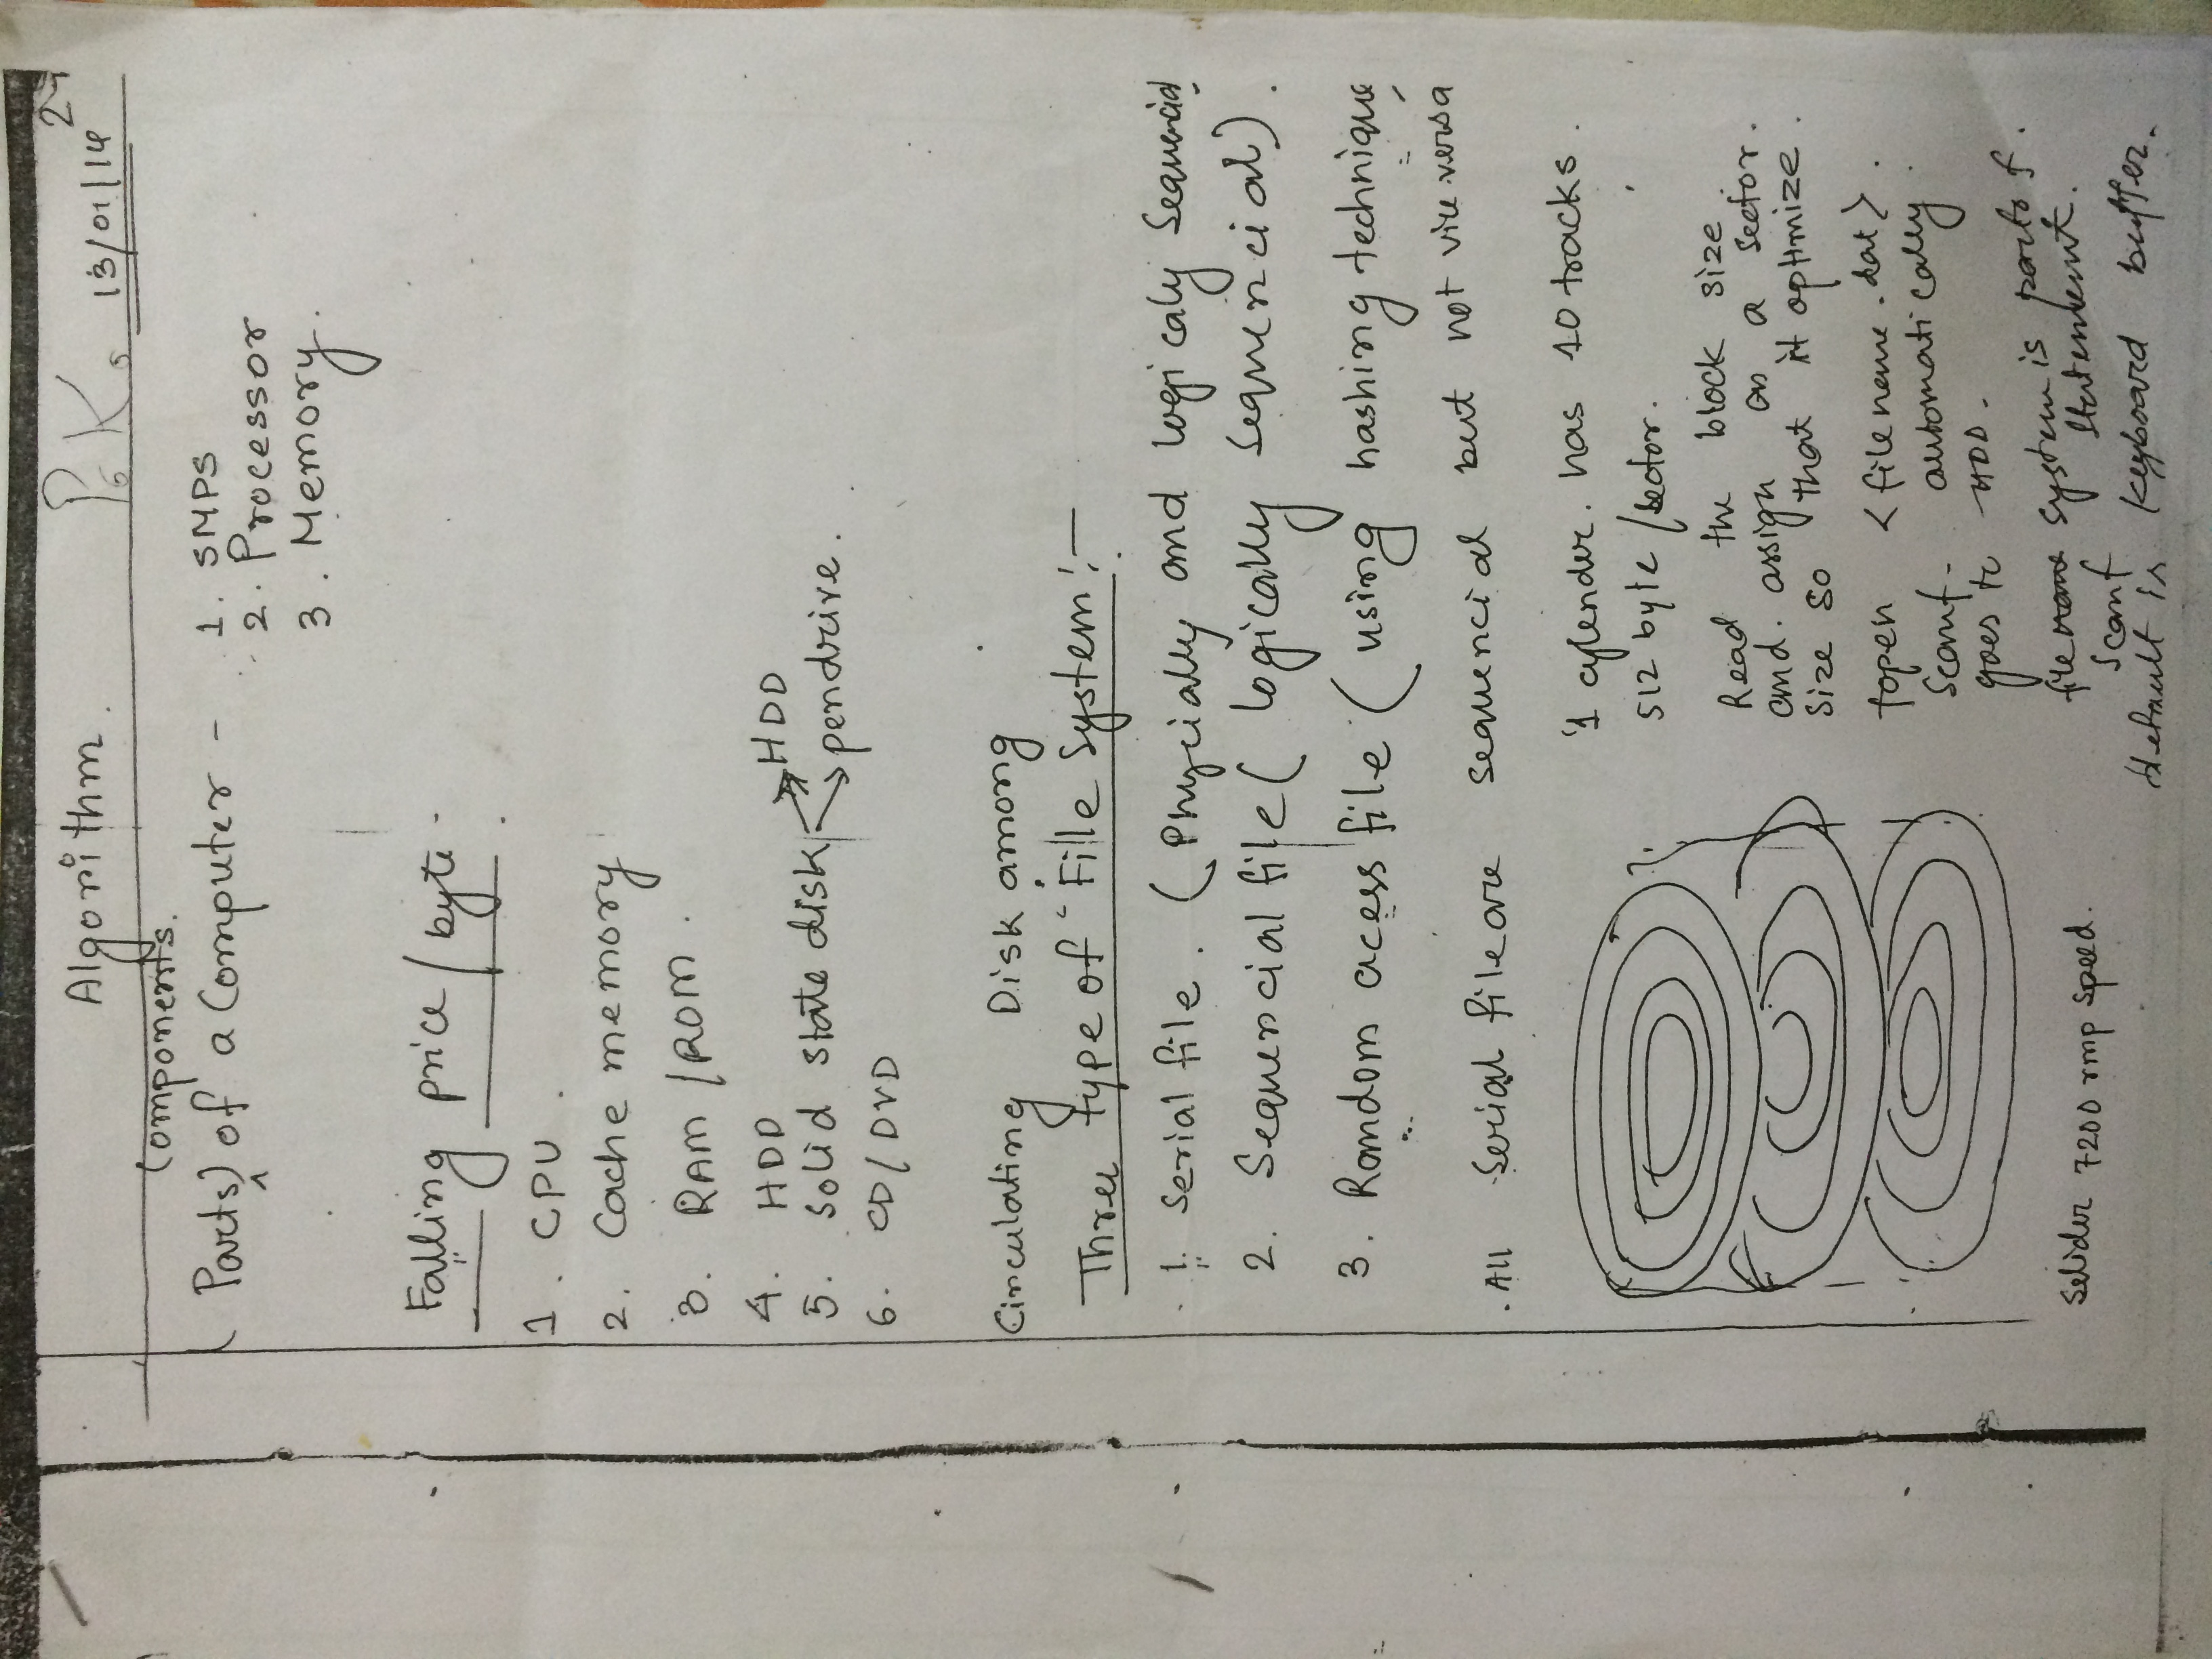 Algorithm. P. K. 13/01/14
components.
Parts) of a Computer - 1. SMPS
2. Processor
3. Memory.
Falling price / byte -
1. CPU.
2. Cache memory
3. RAM / ROM.
4. HDD
5. Solid state disk → HDD
→ pendrive.
6. CD / DVD
Circulating Disk among
Three type of File System :-
1. Serial file. ( Phycially and logicaly Sequencial
2. Sequencial file ( logically Sequencial).
3. Random acess file ( using hashing technique
. All Serial file are sequencial but not vice versa
1 cylender. has 10 tracks.
512 byte / sector.
Read the block size
and. assign as a sector.
size so that it optimize.
fopen <filename.dat>.
Scanf - automatically
goes to HDD.
file name system is part of.
Scanf Statement.
default is keyboard buffer.
Selider 7200 rmp speed.